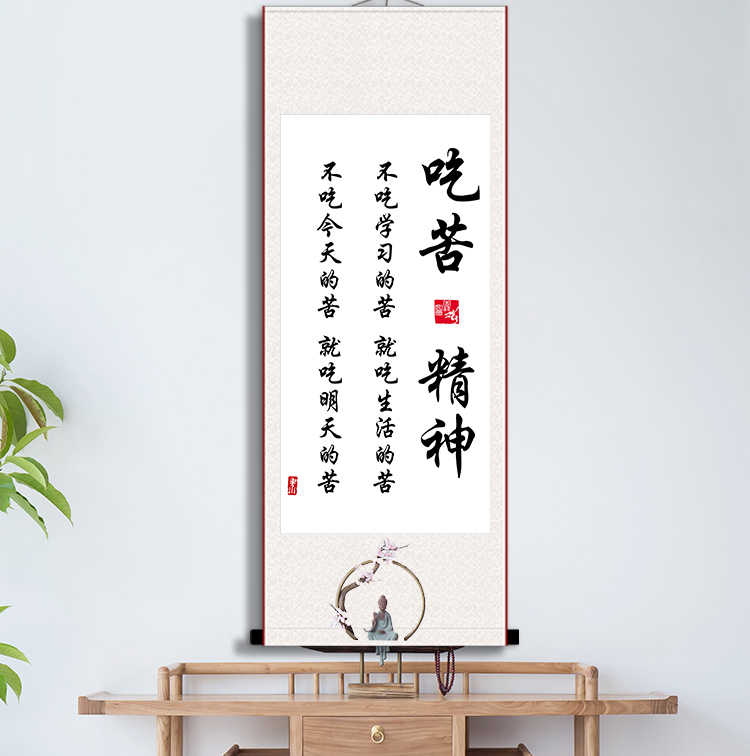 吃苦精神
不吃学习的苦 就吃生活的苦
不吃今天的苦 就吃明天的苦